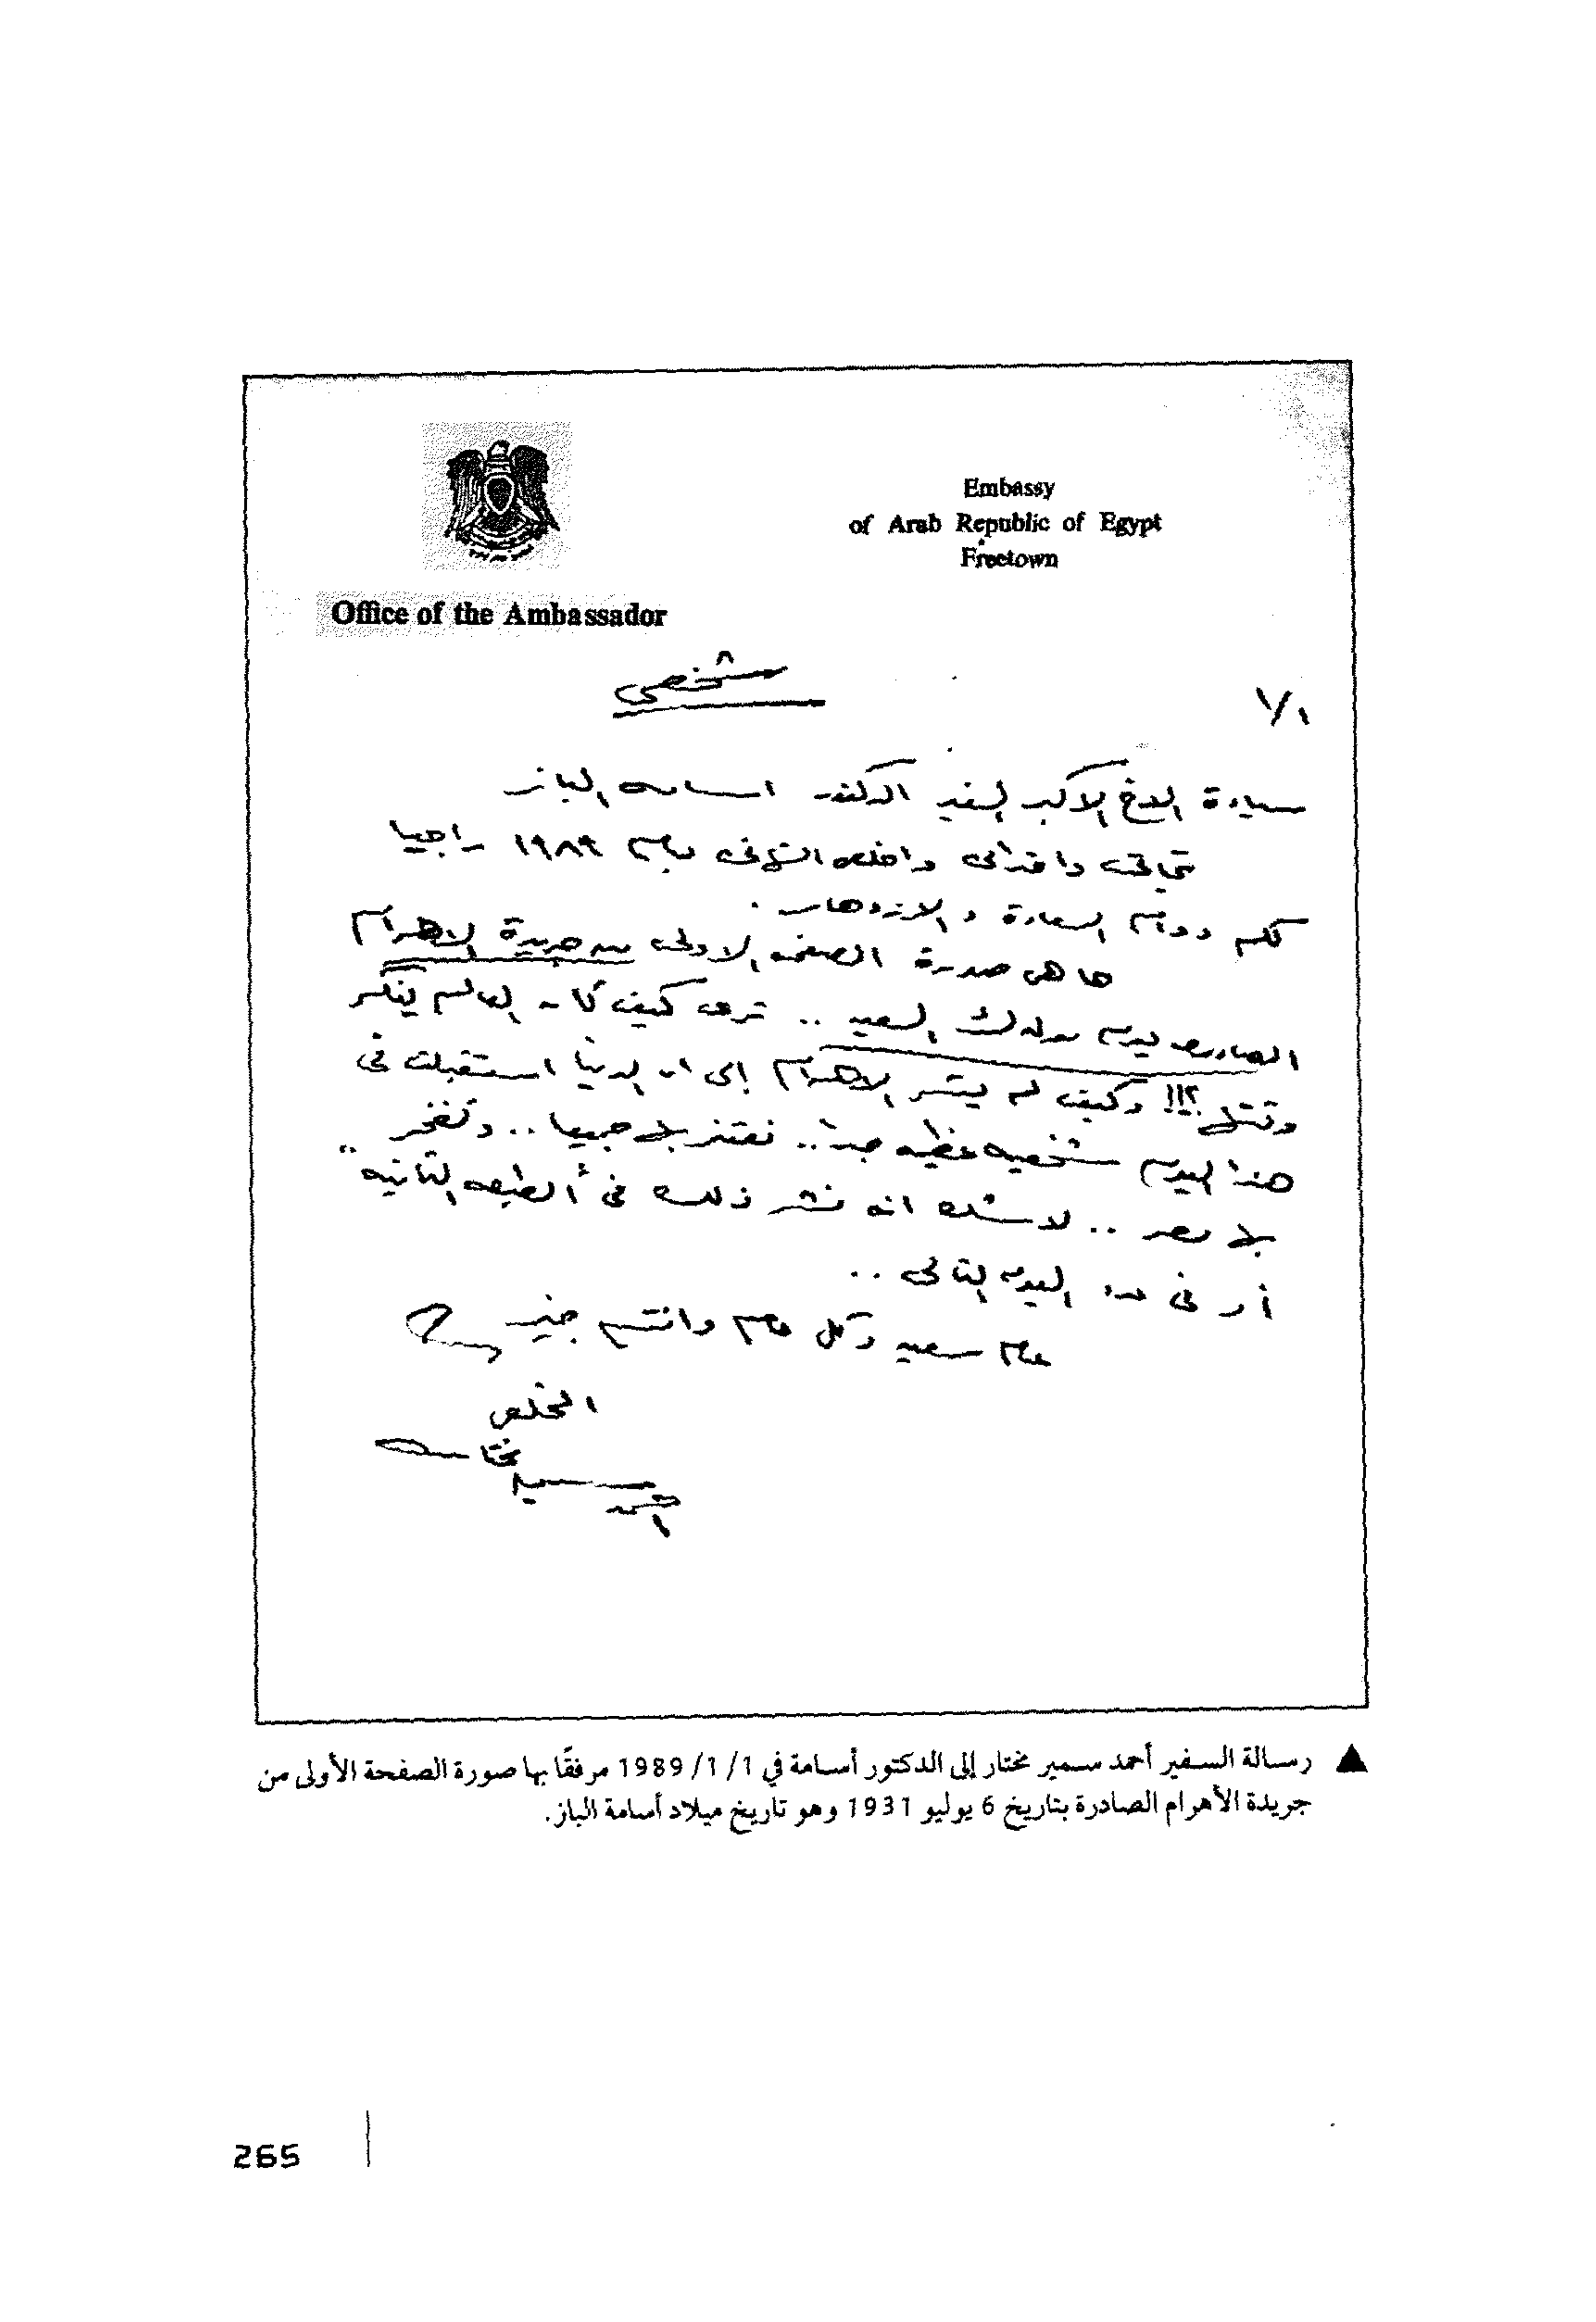 Embassy
of Arab Republic of Egypt
Freetown
Office of the Ambassador
شخصى
١/١
سيادة الاخ الاكبر السفير الدكتور اسامه الباز
تحياتى واخلص التهانى بعام ١٩٨٩ راجيا
لكم دوام السعادة والازدهار .
ها هى صورة الصفحه الاولى من جريدة الاهرام
الصادره يوم مولدك السعيد .. ترى كيف كان العالم يفكر
!!؟ وكيف لم يشر الاهرام إلى ان الدنيا استقبلت فى
هذا اليوم شخصيه عظيمه جدا .. نعتز بك جميعا .. وتفخر
بك مصر .. لا شك انه نشر ذلك فى "الطبعه الثانيه"
أو فى عدد اليوم التالى ..
عام سعيد وكل عام وانتم بخير
المخلص
احمد سمير مختار
رسالة السفير أحمد سمير مختار إلى الدكتور أسامة في 1/ 1/ 1989 مرفقًا بها صورة الصفحة الأولى من
جريدة الأهرام الصادرة بتاريخ 6 يوليو 1931 وهو تاريخ ميلاد أسامة الباز.
265